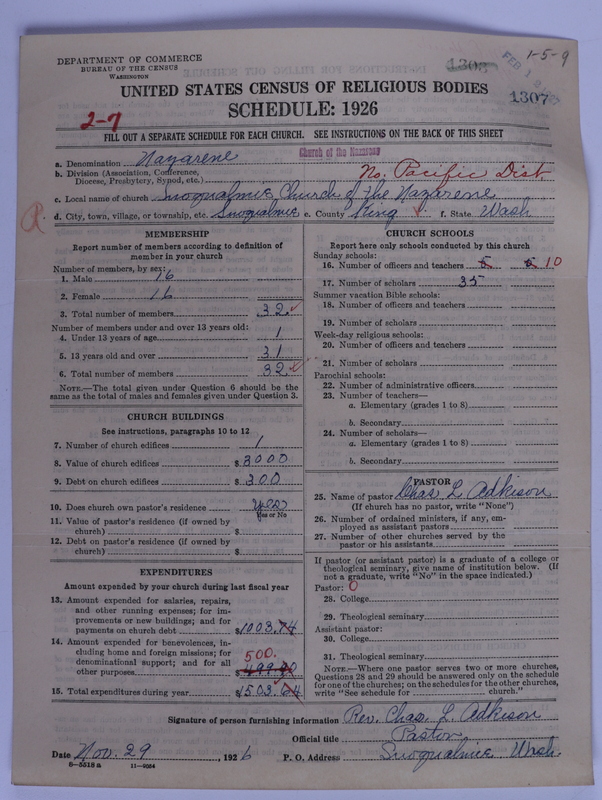 DEPARTMENT OF COMMERCE
BUREAU OF THE CENSUS
WASHINGTON
1303
FEB 1
1-5-9
1307
UNITED STATES CENSUS OF RELIGIOUS BODIES
SCHEDULE: 1926
2-7
FILL OUT A SEPARATE SCHEDULE FOR EACH CHURCH. SEE INSTRUCTIONS ON THE BACK OF THIS SHEET
Church of the Nazarene
a. Denomination Nazarene
b. Division (Association, Conference, Diocese, Presbytery, Synod, etc.) No. Pacific Dist
c. Local name of church Snoqualmie Church of the Nazarene
d. City, town, village, or township, etc. Snoqualmie e. County King f. State Wash
R
MEMBERSHIP
Report number of members according to definition of
member in your church
Number of members, by sex:
1. Male 16
2. Female 16
3. Total number of members 32
Number of members under and over 13 years old:
4. Under 13 years of age 1
5. 13 years old and over 31
6. Total number of members 32
NOTE.—The total given under Question 6 should be the
same as the total of males and females given under Question 3.
CHURCH BUILDINGS
See instructions, paragraphs 10 to 12
7. Number of church edifices 1
8. Value of church edifices $3000
9. Debt on church edifices $300
10. Does church own pastor's residence yes
Yes or No
11. Value of pastor's residence (if owned by
church) $
12. Debt on pastor's residence (if owned by
church) $
EXPENDITURES
Amount expended by your church during last fiscal year
13. Amount expended for salaries, repairs,
and other running expenses; for im-
provements or new buildings; and for
payments on church debt $1003.74
14. Amount expended for benevolences, in-
cluding home and foreign missions; for
denominational support; and for all
other purposes 500. $499.90
15. Total expenditures during year $1503.64
CHURCH SCHOOLS
Report here only schools conducted by this church
Sunday schools:
16. Number of officers and teachers 5 6 10
17. Number of scholars 35
Summer vacation Bible schools:
18. Number of officers and teachers
19. Number of scholars
Week-day religious schools:
20. Number of officers and teachers
21. Number of scholars
Parochial schools:
22. Number of administrative officers
23. Number of teachers—
a. Elementary (grades 1 to 8)
b. Secondary
24. Number of scholars—
a. Elementary (grades 1 to 8)
b. Secondary
PASTOR
25. Name of pastor Chas. L. Adkison
(If church has no pastor, write "None")
26. Number of ordained ministers, if any, em-
ployed as assistant pastors
27. Number of other churches served by the
pastor or his assistants
If pastor (or assistant pastor) is a graduate of a college or
theological seminary, give name of institution below. (If
not a graduate, write "No" in the space indicated.)
Pastor: 0
28. College
29. Theological seminary
Assistant pastor:
30. College
31. Theological seminary
NOTE.—Where one pastor serves two or more churches,
Questions 28 and 29 should be answered only on the schedule
for one of the churches; on the schedules for the other churches,
write "See schedule for church."
Signature of person furnishing information Rev. Chas. L. Adkison
Official title Pastor
Date Nov. 29, 1926 P. O. Address Snoqualmie Wash.
8-5518a 11-9054